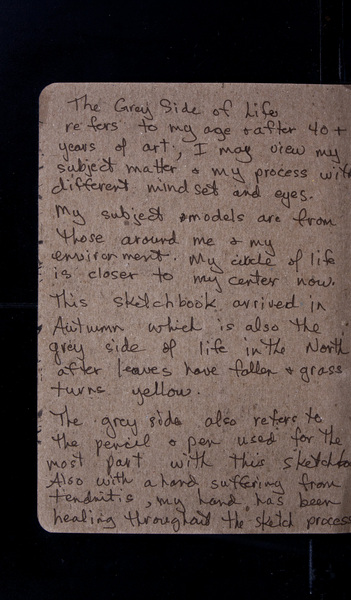 The Grey Side of Life
refers to my age & after 40+
years of art, I may view my
subject matter & my process with
different mindset and eyes.
My subject & models are from
those around me & my
environment. My circle of life
is closer to my center now.
This sketchbook arrived in
Autumn which is also the
grey side of life in the North
after leaves have fallen & grass
turns yellow.
The grey side also refers to
the pencil & pen used for the
most part with this sketchbo
Also with a hand suffering from
tendnitis, my hand has been
healing throughout the sketch process